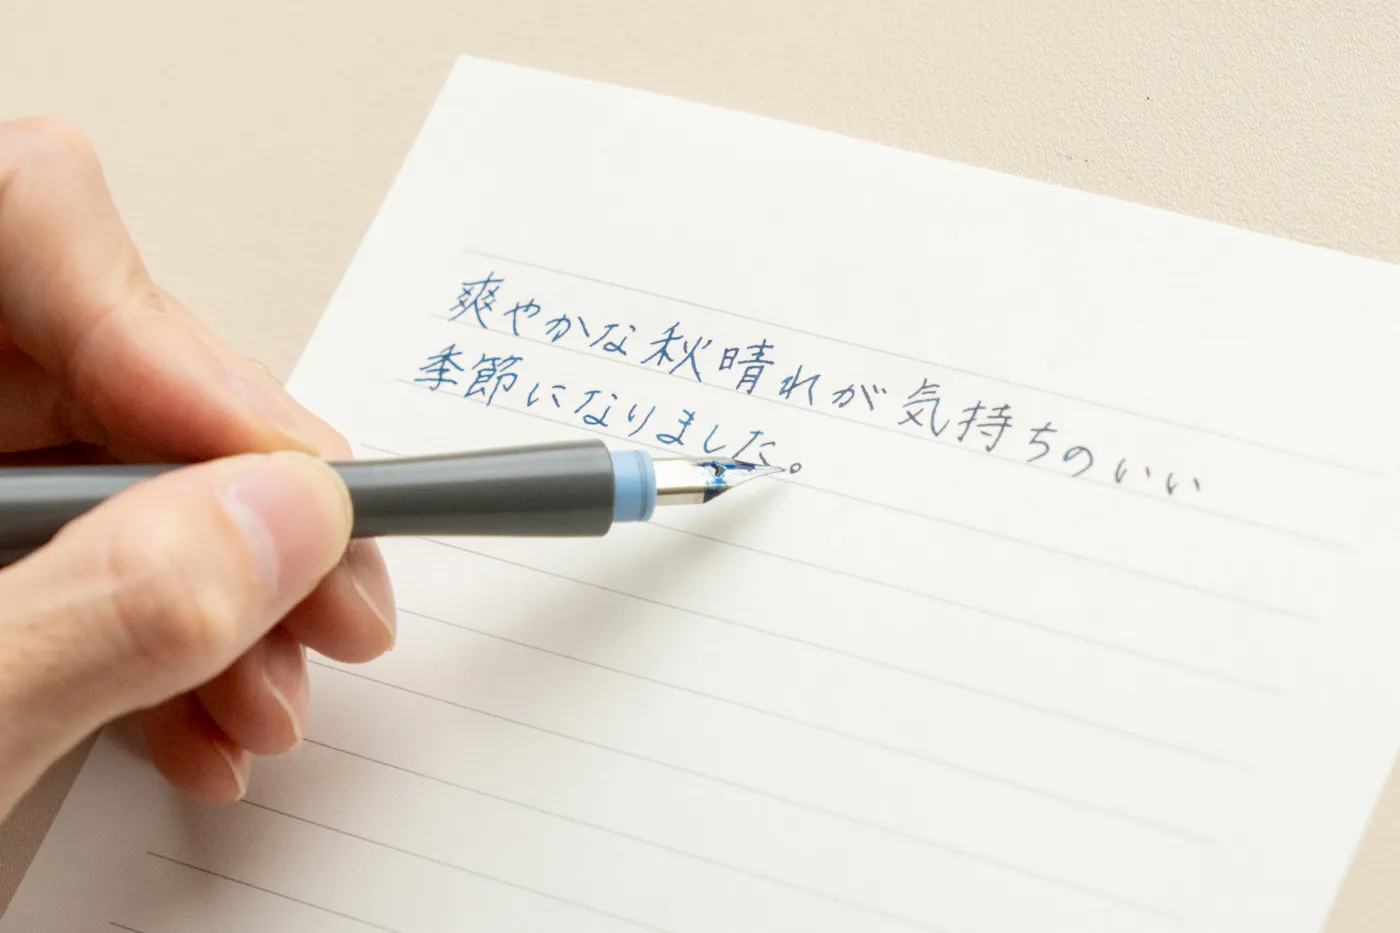 爽やかな秋晴れが気持ちのいい
季節になりました。